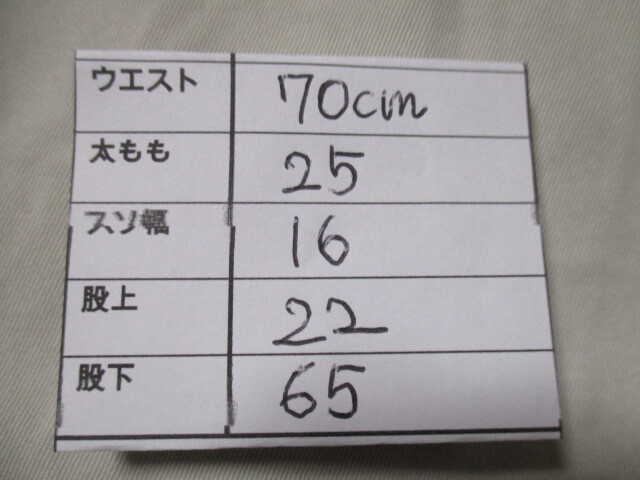 ウエスト 70cm
太もも 25
スソ幅 16
股上 22
股下 65